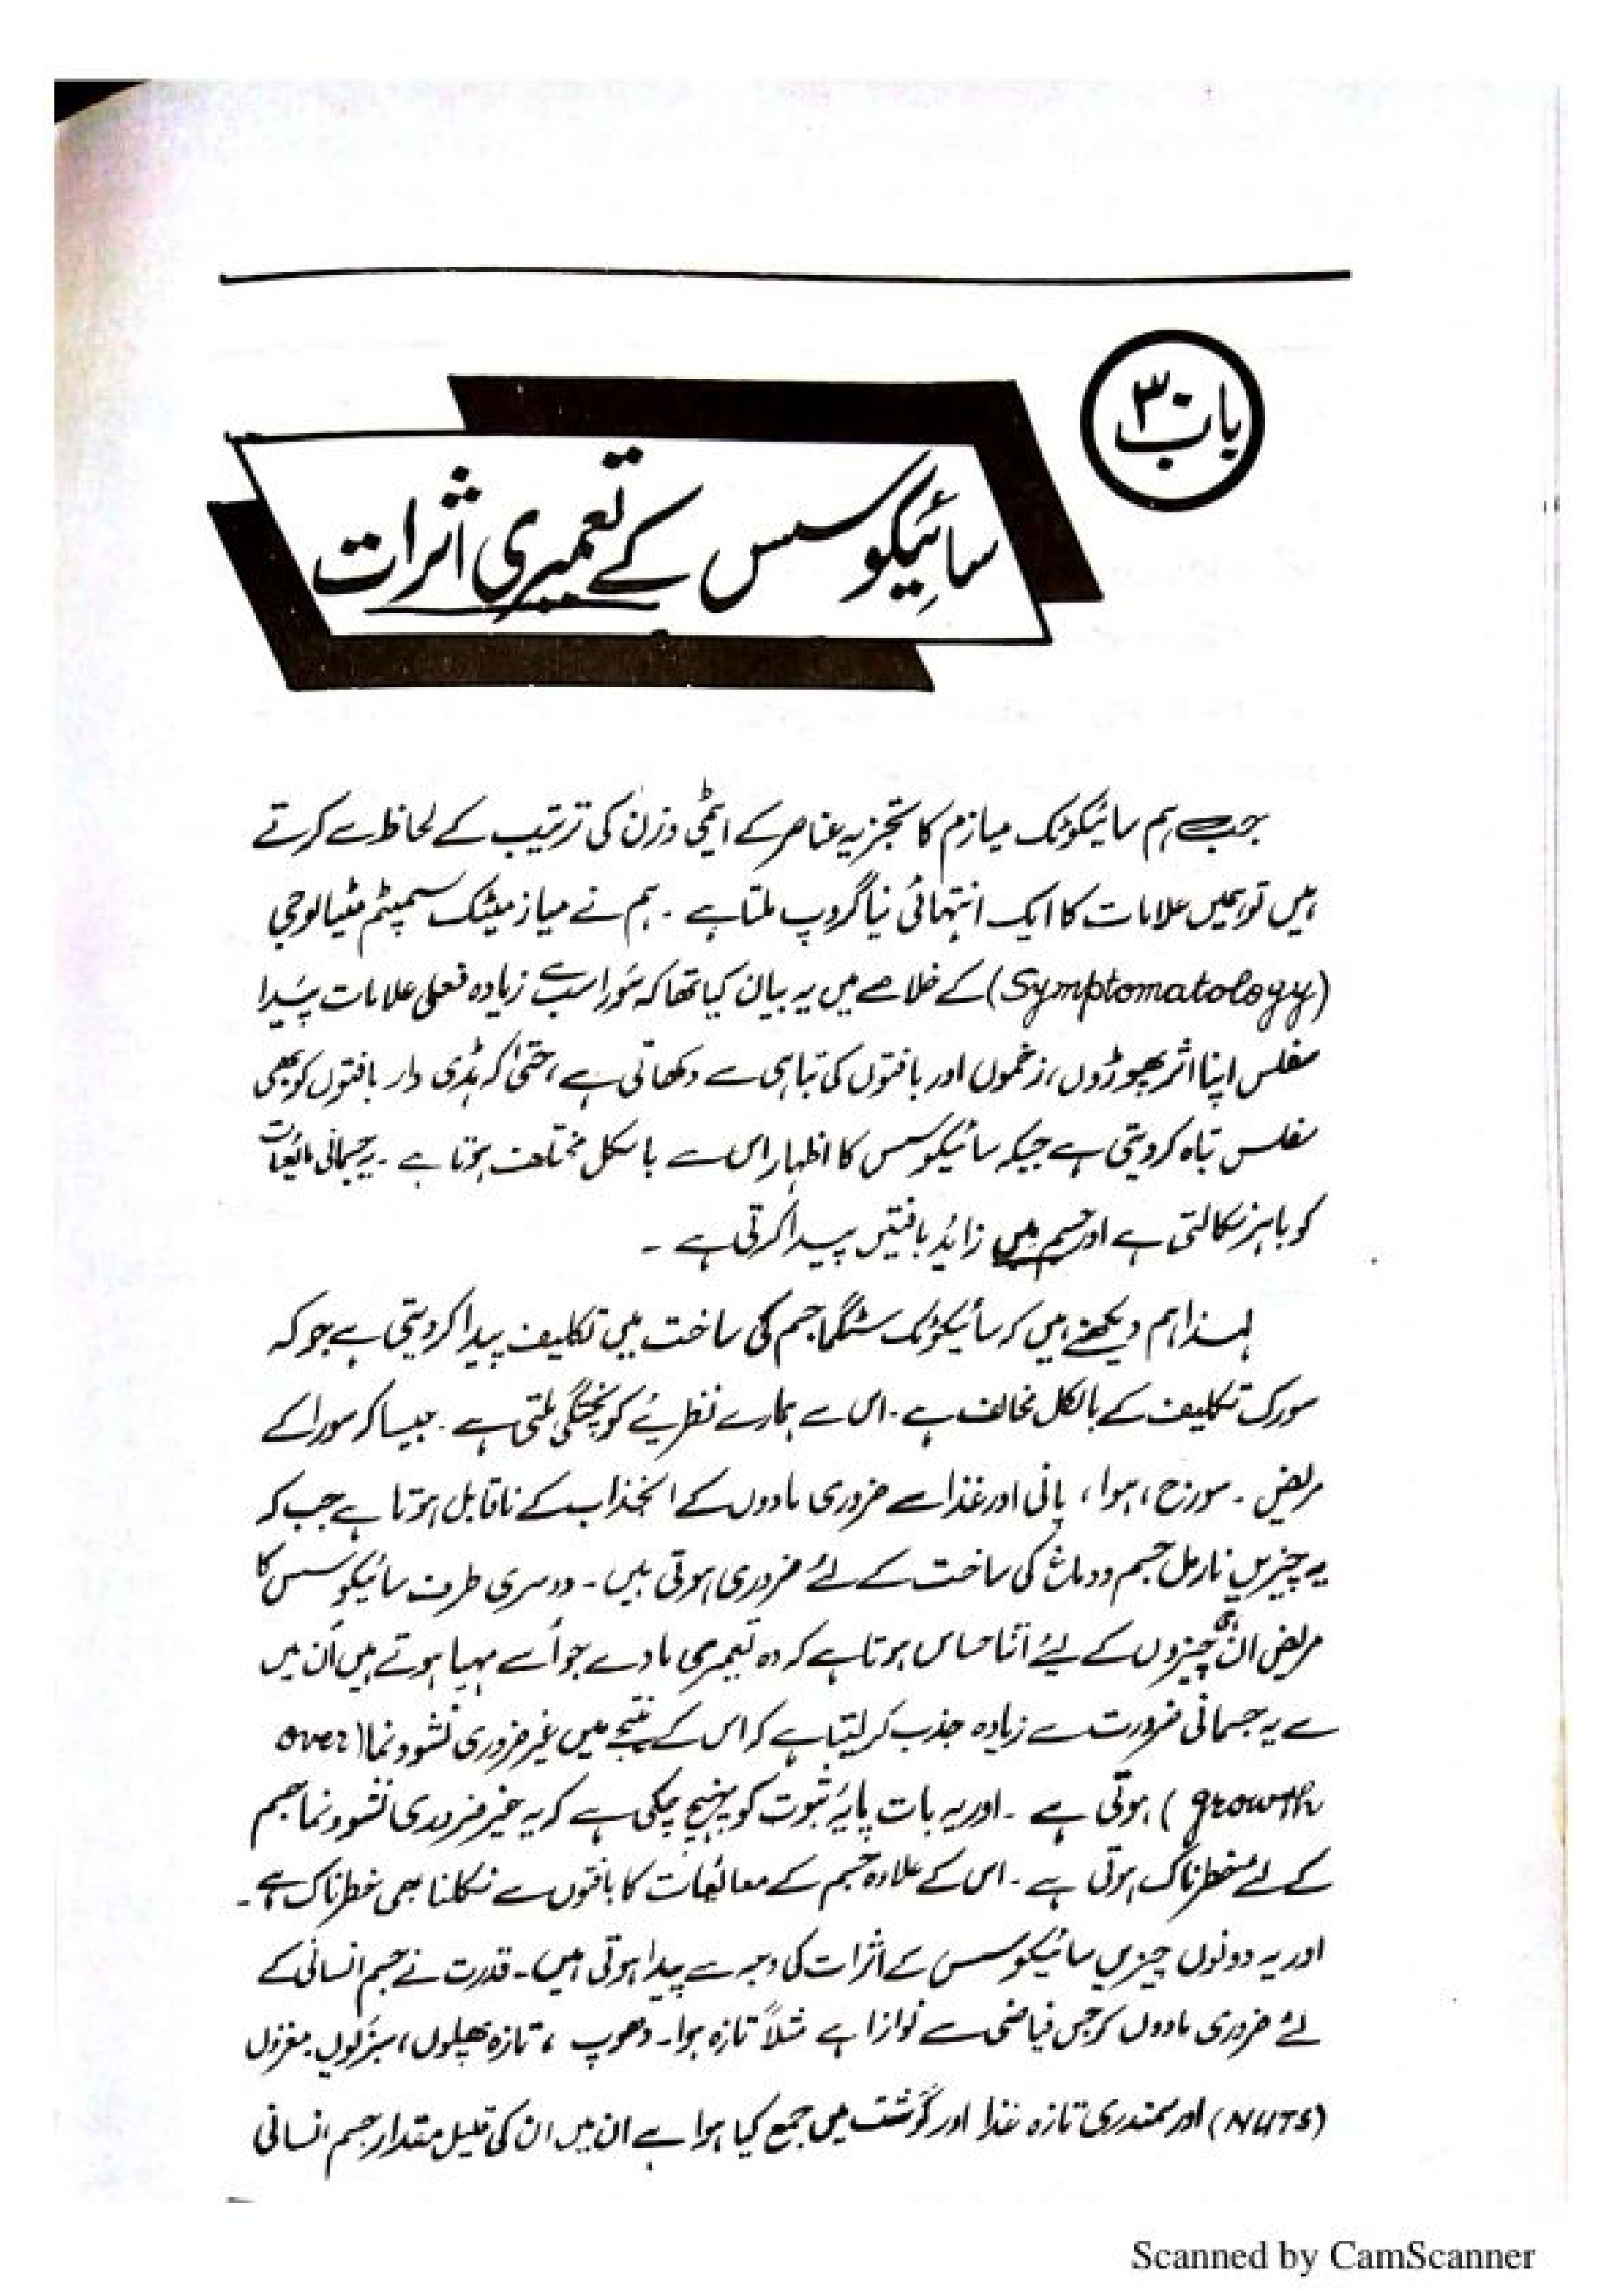 باب ۳۰
سائیکوسس کے تعمیری اثرات
جب ہم سائیکوٹک میازم کا تجزیہ عناصر کے ایٹمی وزن کی ترتیب کے لحاظ سے کرتے
ہیں تو ہمیں علامات کا ایک انتہائی نیا گروپ ملتا ہے ۔ ہم نے میازمیٹک سمپٹم ٹیالوجی
(Symptomatology) کے خلاصے میں یہ بیان کیا تھا کہ سَورا سب سے زیادہ فعلی علامات پَیدا
سفلس اپنا اثر پھوڑوں، زخموں اور بافتوں کی تباہی سے دکھاتی ہے، حتیٰ کہ ہڈی دار بافتوں کو بھی
سفلس تباہ کر دیتی ہے جبکہ سائیکوسس کا اظہار اس سے بالکل مختلف ہوتا ہے ۔ یہ جسمانی مائعات
کو باہر نکالتی ہے اور جسم میں زائد بافتیں پیدا کرتی ہے ۔
لہذا ہم دیکھتے ہیں کہ سائیکوٹک سٹگما جسم کی ساخت میں تکلیف پیدا کر دیتی ہے جو کہ
سورک تکلیف کے بالکل مخالف ہے ۔ اس سے ہمارے نظریئے کو پختگی ملتی ہے ۔ جیسا کہ سورا کے
مریض ۔ سورج، ہوا، پانی اور غذا سے ضروری مادوں کے انجذاب کے ناقابل ہوتا ہے جب کہ
یہ چیزیں نارمل جسم و دماغ کی ساخت کے لئے ضروری ہوتی ہیں ۔ دوسری طرف سائیکوسس کا
مریض ان چیزوں کے لیئے اتنا حساس ہوتا ہے کہ وہ تعمیری مادے جو اُسے مہیا ہوتے ہیں اُن میں
سے یہ جسمانی ضرورت سے زیادہ جذب کر لیتا ہے کہ اس کے نتیجے میں غیر ضروری نشوونما (over
growth) ہوتی ہے ۔ اور یہ بات پایۂ ثبوت کو پہنچ چکی ہے کہ یہ غیر ضروری نشوونما جسم
کے لئے خطرناک ہوتی ہے ۔ اس کے علاوہ جسم کے معائعات کا بافتوں سے نکلنا بھی خطرناک ہے ۔
اور یہ دونوں چیزیں سائیکوسس کے اثرات کی وجہ سے پیدا ہوتی ہیں ۔ قدرت نے جسم انسانی کے
لئے ضروری مادوں کو جس فیاضی سے نوازا ہے مثلاً تازہ ہوا ۔ دھوپ ، تازہ پھلوں، سبزیوں، مغزوں
(NUTS) اور سمندری تازہ غذا اور گوشت میں جمع کیا ہوا ہے ان میں ان کی قلیل مقدار جسم انسانی
Scanned by CamScanner